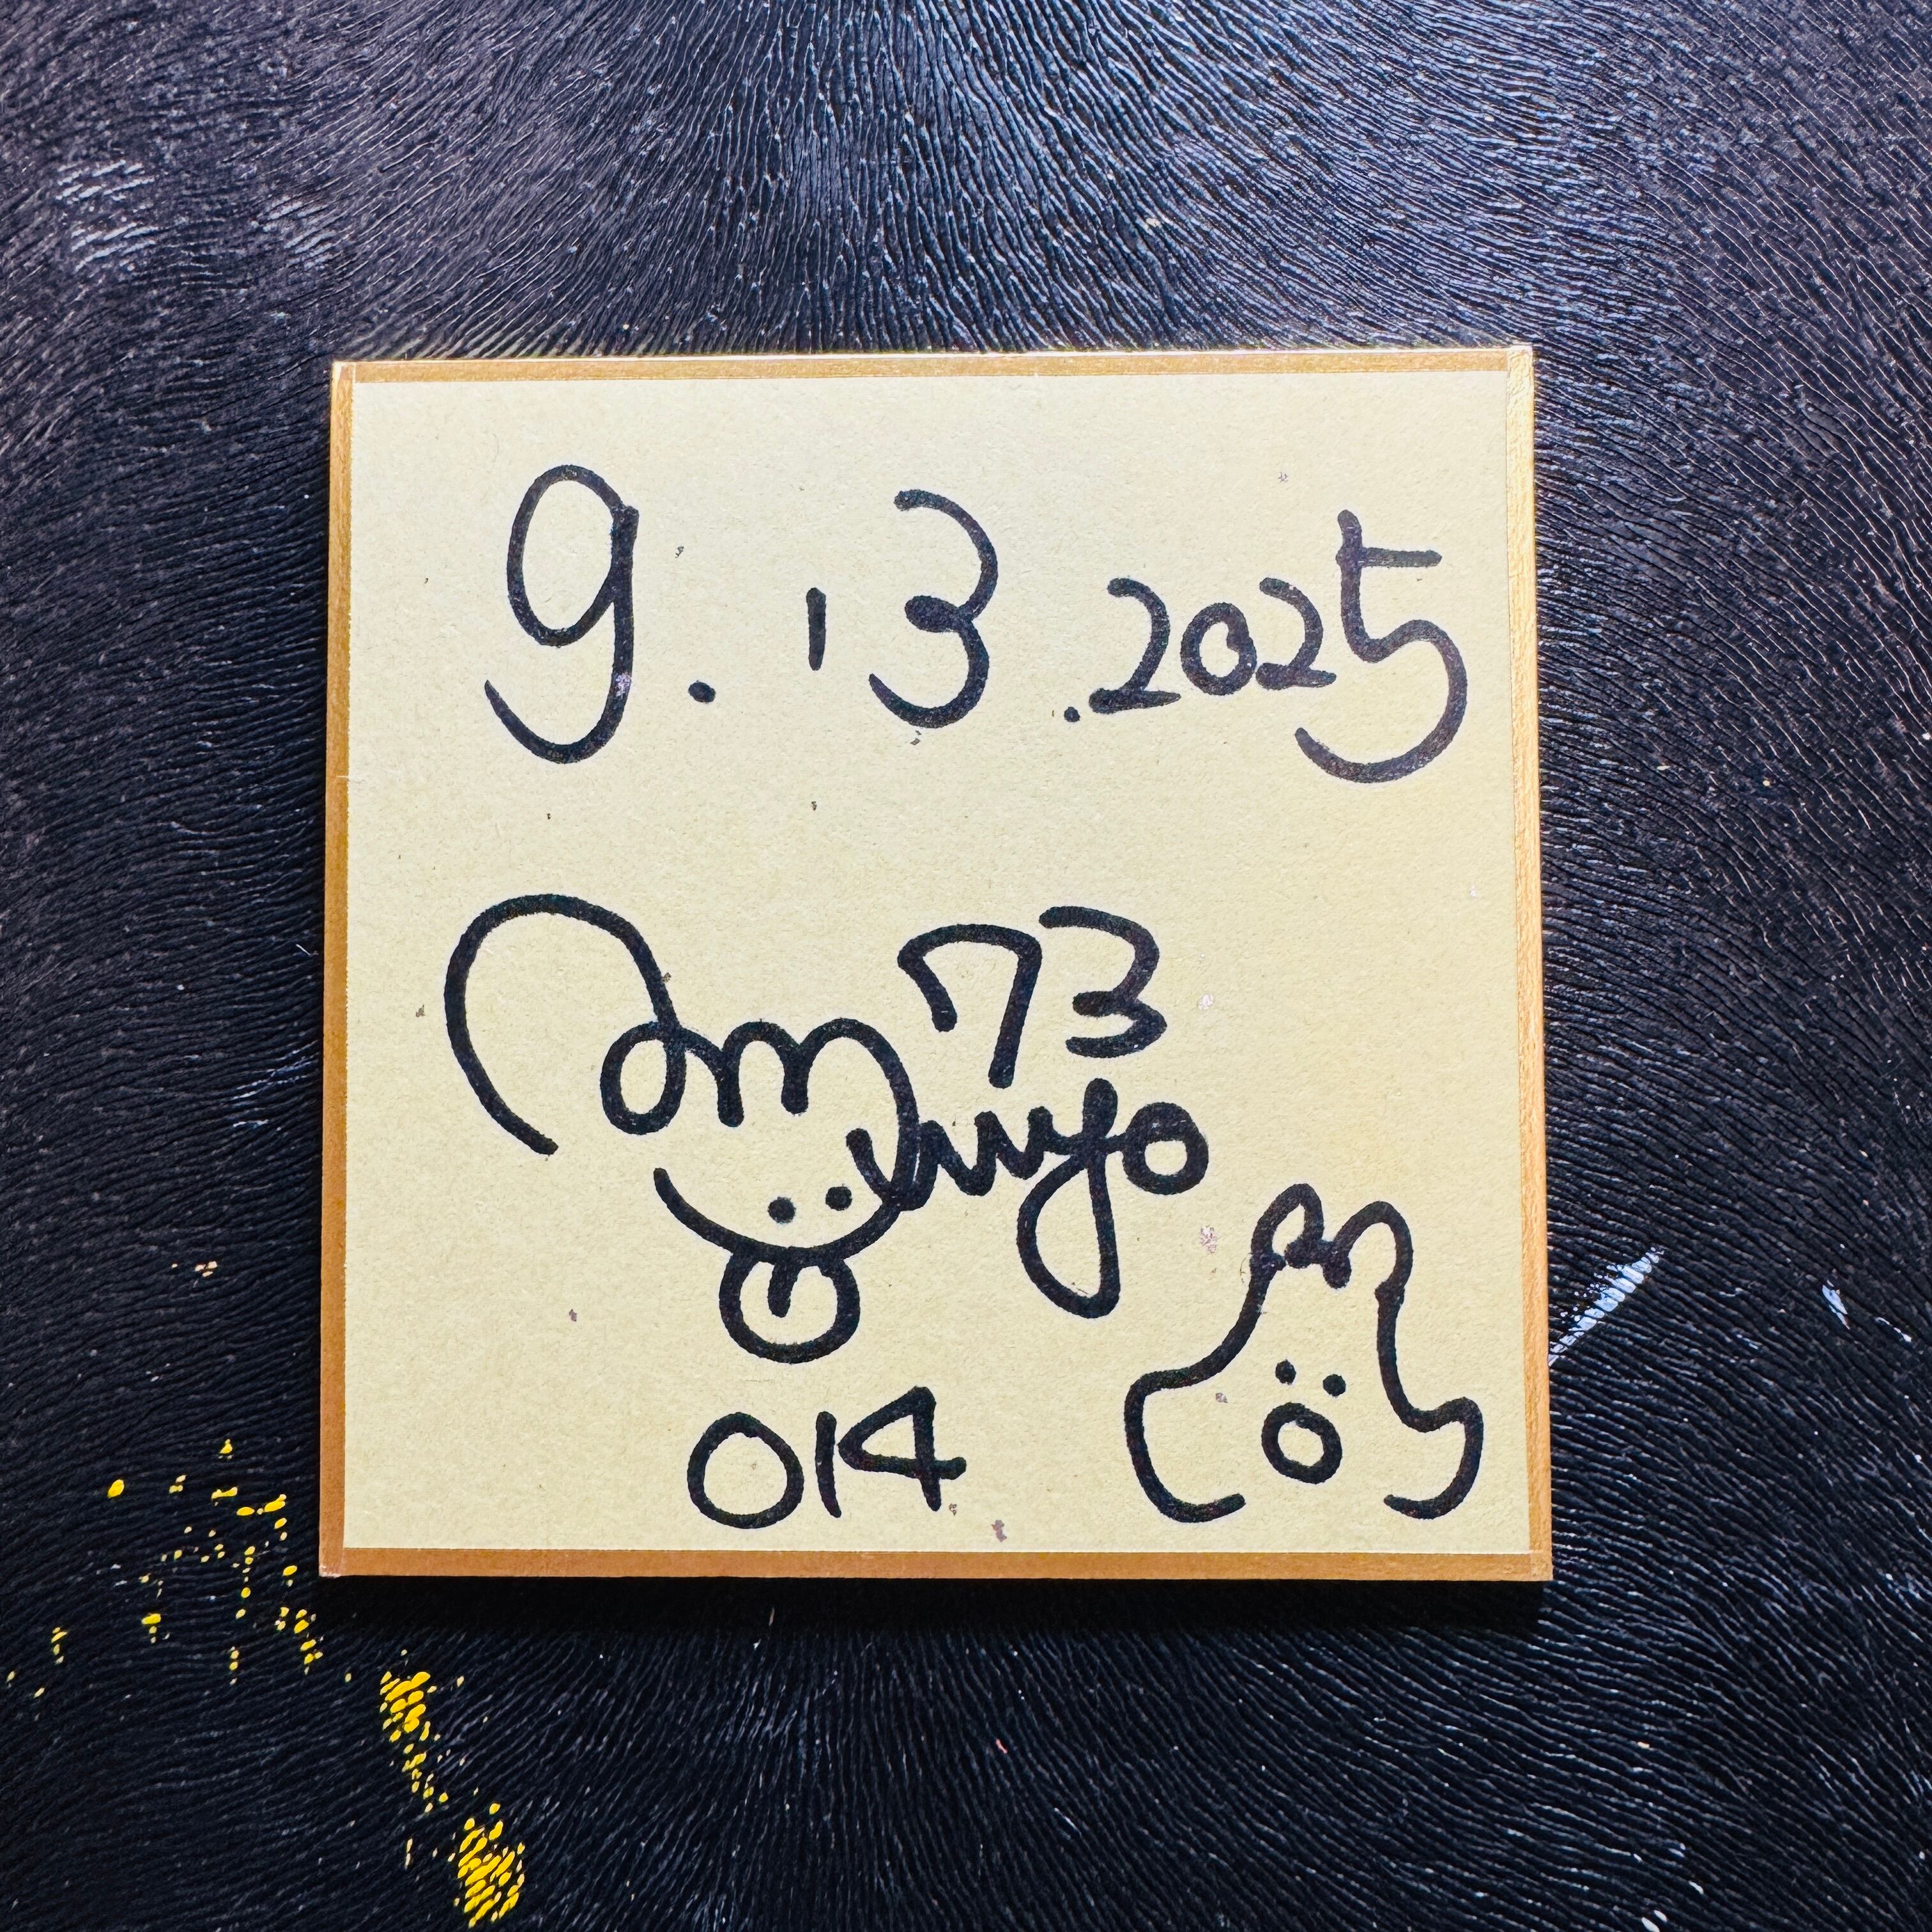 9.13.2025
73
014